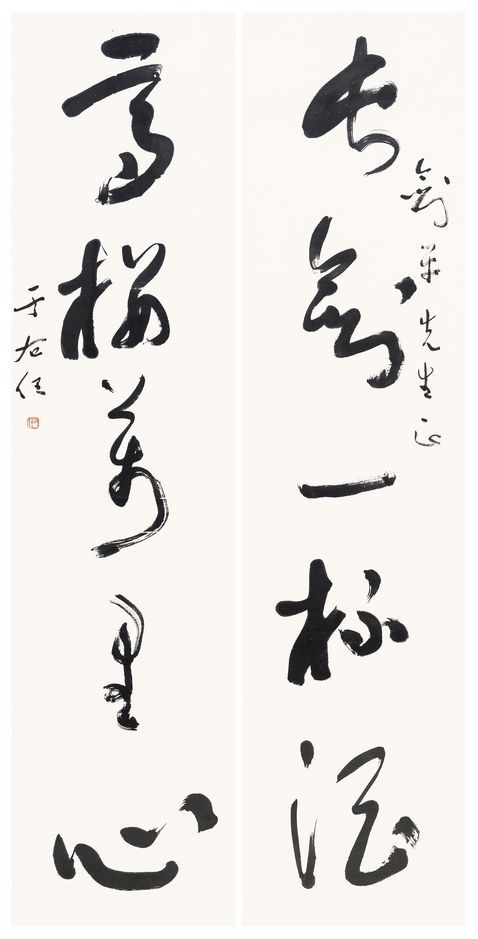 劍先生正
長劍一杯酒
高樓萬里心
于右任